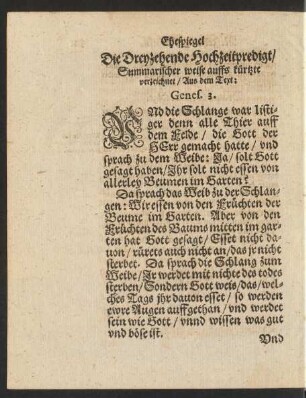 Ehespiegel
Die Dreyzehende Hochzeitpredigt/
Summarischer weise auffs kürtzte
verzeichnet/ Aus dem Text:
Genes. 3.
UNd die Schlange war listi-
ger denn alle Thier auff
dem Felde/ die Gott der
HErr gemacht hatte/ vnd
sprach zu dem Weibe: Ja/ solt Gott
gesagt haben/ Ihr solt nicht essen von
allerley Beumen im Garten?
Da sprach das Weib zu der Schlan-
gen: Wir essen von den Früchten der
Beume im Garten. Aber von den
Früchten des Baums mitten im gar-
ten hat Gott gesagt/ Esset nicht da-
uon/ rürets auch nicht an/ das jr nicht
sterbet. Da sprach die Schlang zum
Weibe/ Ir werdet mit nichte des todes
sterben/ Sondern Gott weis/ das/ wel-
ches Tags jhr dauon esset/ so werden
ewre Augen auffgethan/ vnd werdet
sein wie Gott/ vnnd wissen was gut
vnd böse ist.
Vnd